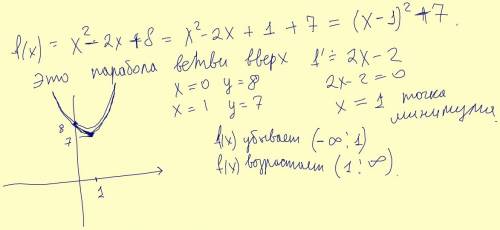 f(x) = x² - 2x + 8 = x² - 2x + 1 + 7 = (x-1)² + 7.
Это парабола ветви вверх f' = 2x - 2
x = 0 y = 8 2x - 2 = 0
x = 1 y = 7 x = 1 точка
минимума
f(x) убывает (-∞; 1)
f(x) возрастает (1; ∞).
8
7
1